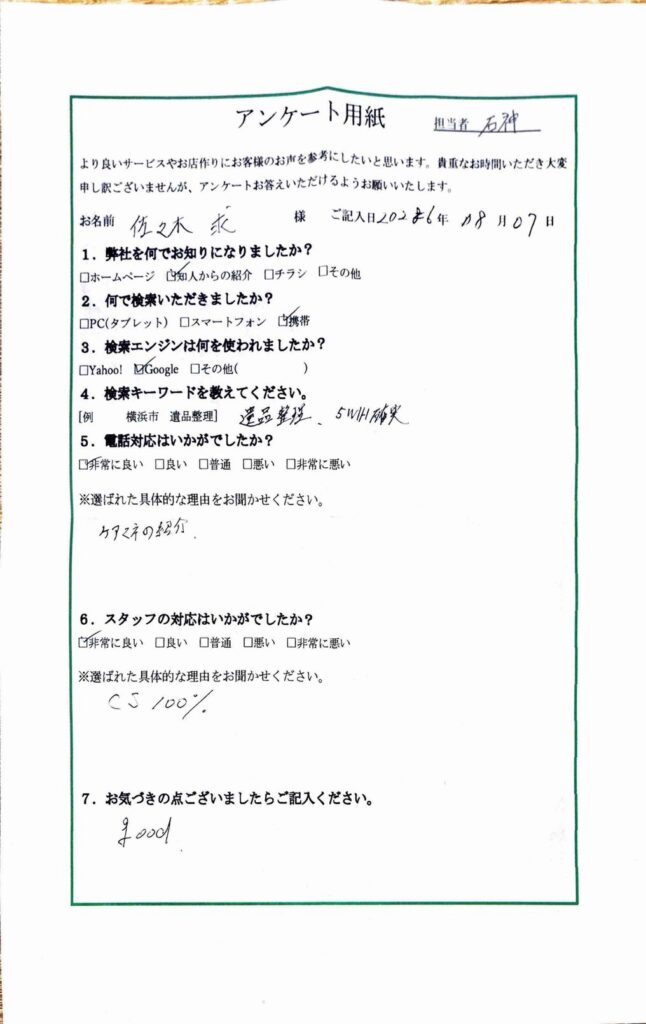 アンケート用紙
担当者 石神
より良いサービスやお店作りにお客様のお声を参考にしたいと思います。貴重なお時間いただき大変
申し訳ございませんが、アンケートお答えいただけるようお願いいたします。
お名前 佐々木 様 ご記入日 2026年 08月07日
1．弊社を何でお知りになりましたか？
□ホームページ ☑知人からの紹介 □チラシ □その他
2．何で検索いただきましたか？
□PC(タブレット) □スマートフォン ☑携帯
3．検索エンジンは何を使われましたか？
□Yahoo! ☑Google □その他( )
4．検索キーワードを教えてください。
[例 横浜市 遺品整理] 遺品整理、5W1H
5．電話対応はいかがでしたか？
☑非常に良い □良い □普通 □悪い □非常に悪い
※選ばれた具体的な理由をお聞かせください。
ケアマネの紹介.
6．スタッフの対応はいかがでしたか？
☑非常に良い □良い □普通 □悪い □非常に悪い
※選ばれた具体的な理由をお聞かせください。
CS 100%
7．お気づきの点ございましたらご記入ください。
good.